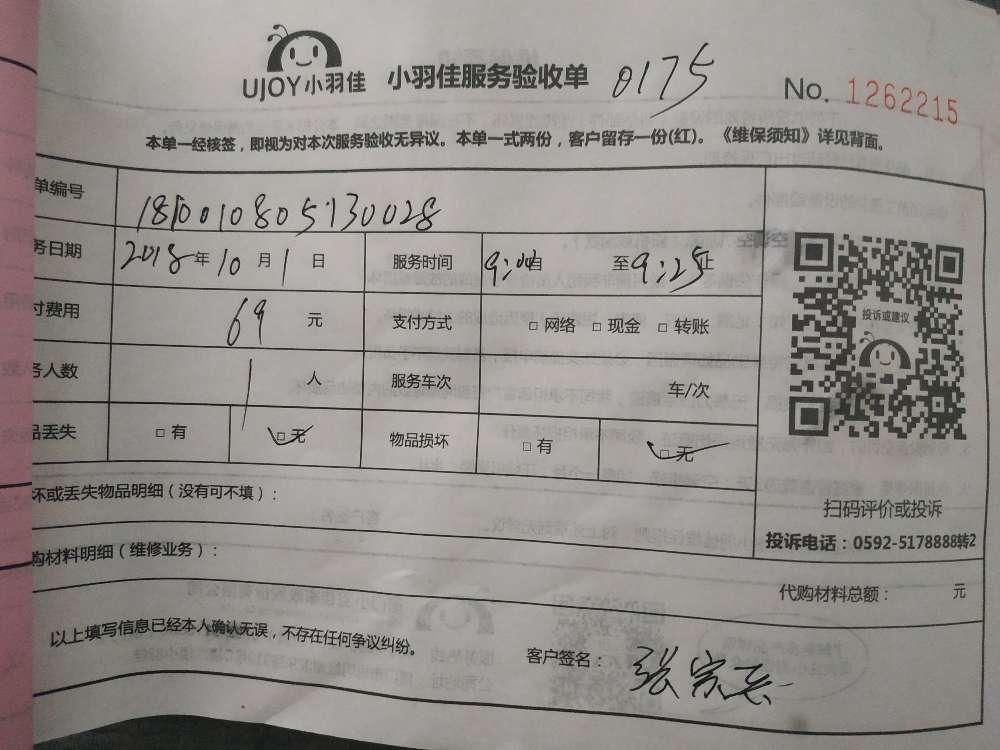 UJOY小羽佳 小羽佳服务验收单 0175 No. 1262215
本单一经核签，即视为对本次服务验收无异议。本单一式两份，客户留存一份(红)。《维保须知》详见背面。
单编号 1810010805130028
务日期 2018年10月1日 服务时间 9:00自 至9:25止
付费用 69 元 支付方式 □ 网络 □ 现金 □ 转账
务人数 1 人 服务车次 车/次
品丢失 □ 有 □ 无 物品损坏 □ 有 □ 无
投诉或建议
坏或丢失物品明细（没有可不填）：
扫码评价或投诉
投诉电话：0592-5178888转2
购材料明细（维修业务）：
代购材料总额： 元
以上填写信息已经本人确认无误，不存在任何争议纠纷。
客户签名： 张宗